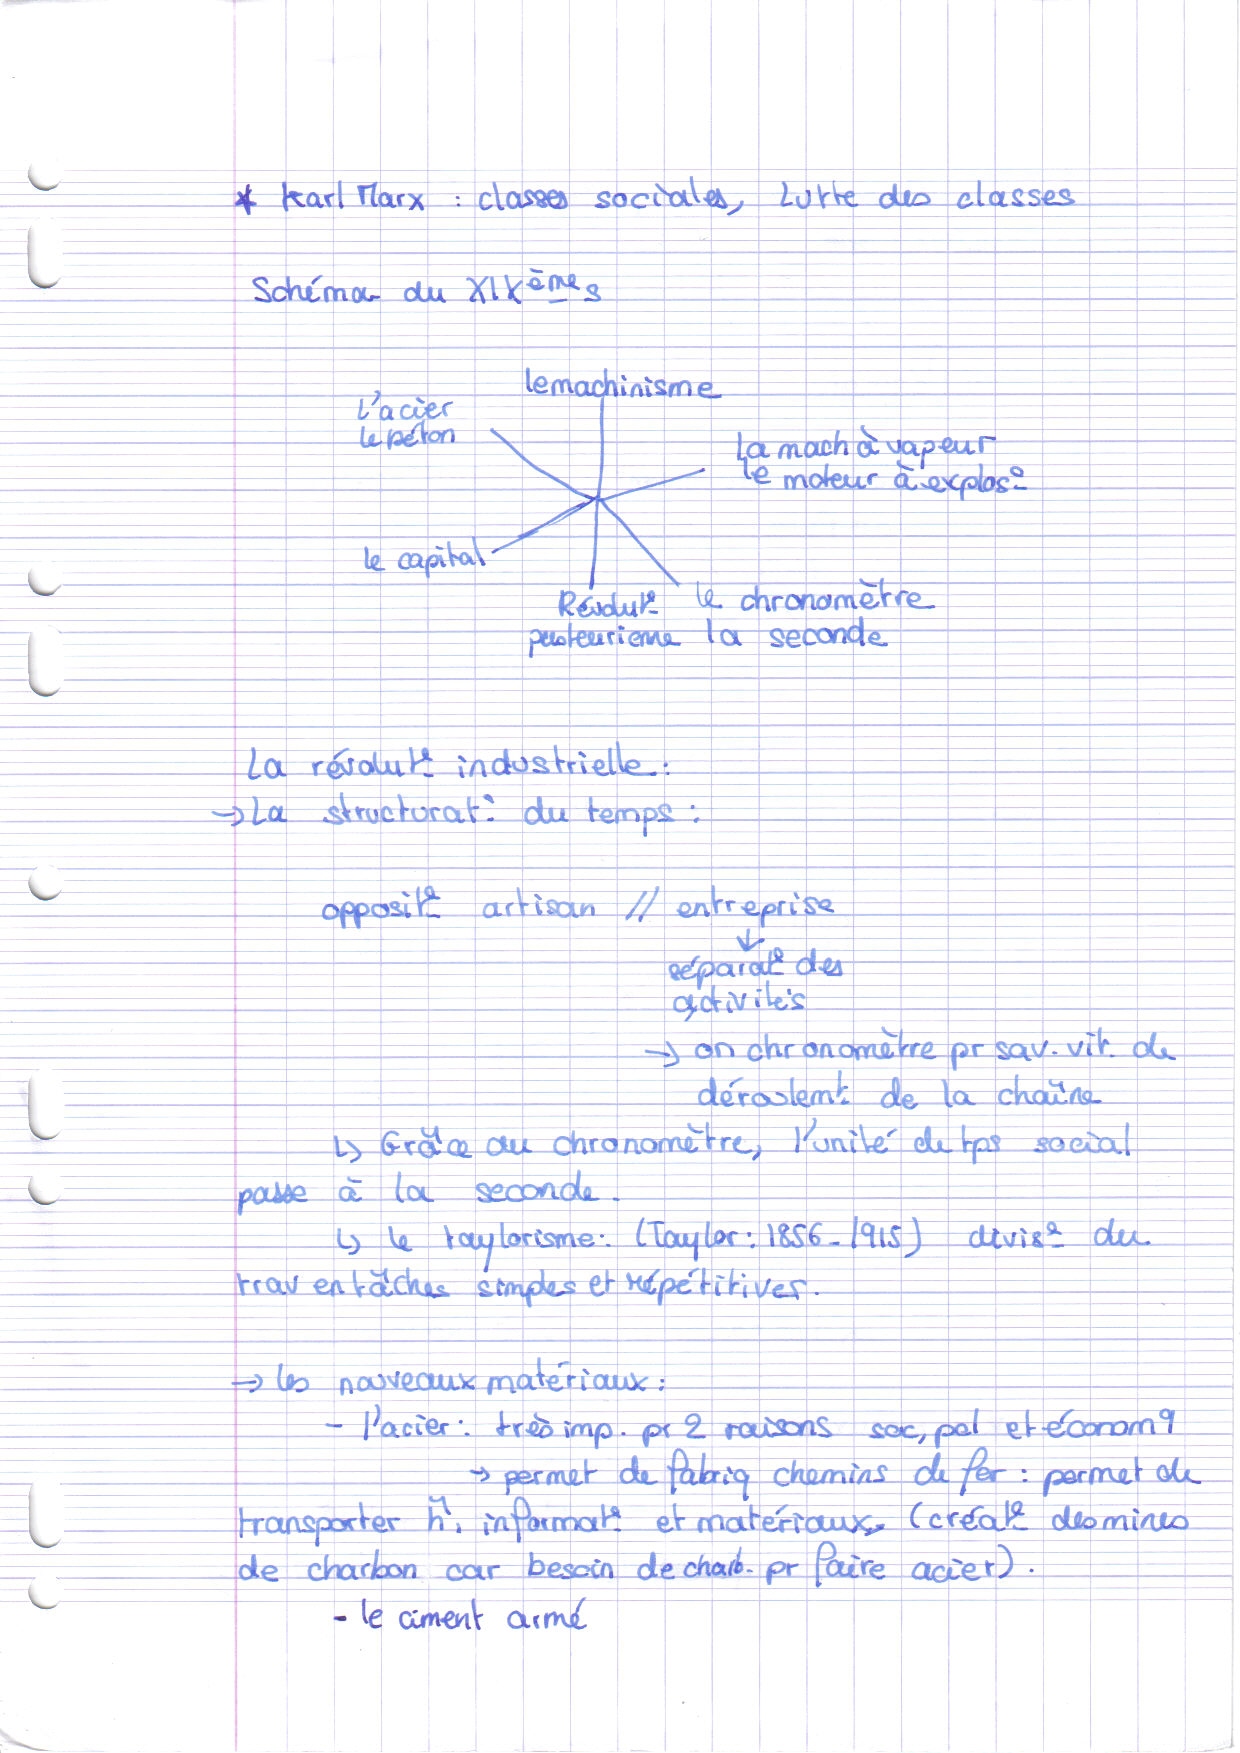 * Karl Marx : classes sociales, Lutte des classes
Schéma du XIXèmes
le machinisme
L'acier
le béton
La mach à vapeur
le moteur à explos°
le capital
Révolut°
pasteurienne
le chronomètre
la seconde
La révolut° industrielle :
→ La structurat° du temps :
opposit° artisan // entreprise
↓
séparat° des
activités
→ on chronomètre pr sav. vit. de
déroulemt de la chaîne
↳ Grâce au chronomètre, l'unité de tps social
passe à la seconde.
↳ le taylorisme : (Taylor : 1856-1915) divis° du
trav en tâches simples et répétitives.
→ les nouveaux matériaux :
- l'acier : très imp. pr 2 raisons soc, pol et économq
→ permet de fabriq chemins de fer : permet de
transporter h, informat° et matériaux. (créat° des mines
de charbon car besoin de charb. pr faire acier).
- le ciment armé